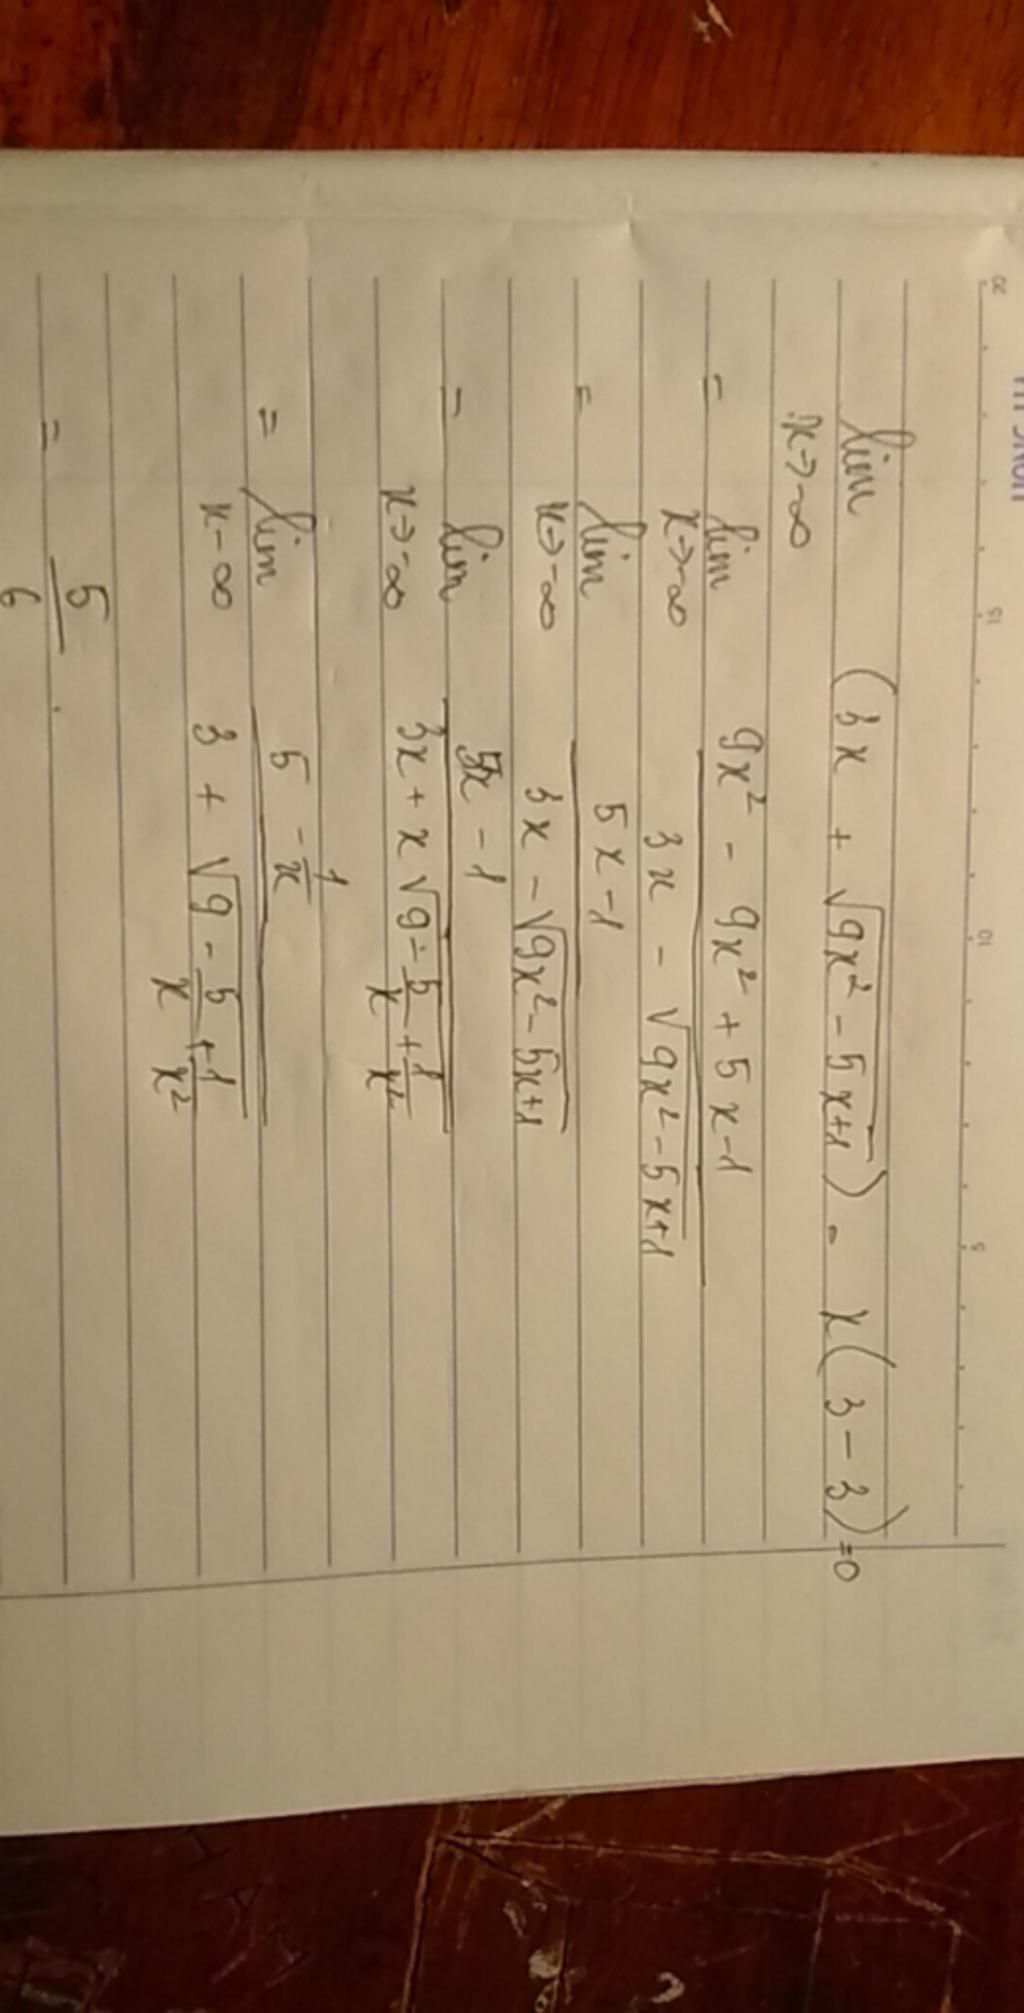 20 15 10 5
lim (3x + √(9x² - 5x+1)) - x(3 - 3) = 0
x→-∞
= lim (9x² - 9x² + 5x-1)/(3x - √(9x² - 5x+1))
x→-∞
= lim (5x-1)/(3x - √(9x² - 5x+1))
x→-∞
= lim (5x - 1)/(3x + x√(9 - 5/x + 1/x²))
x→-∞
= lim (5 - 1/x)/(3 + √(9 - 5/x + 1/x²))
x-∞
= 5/6.